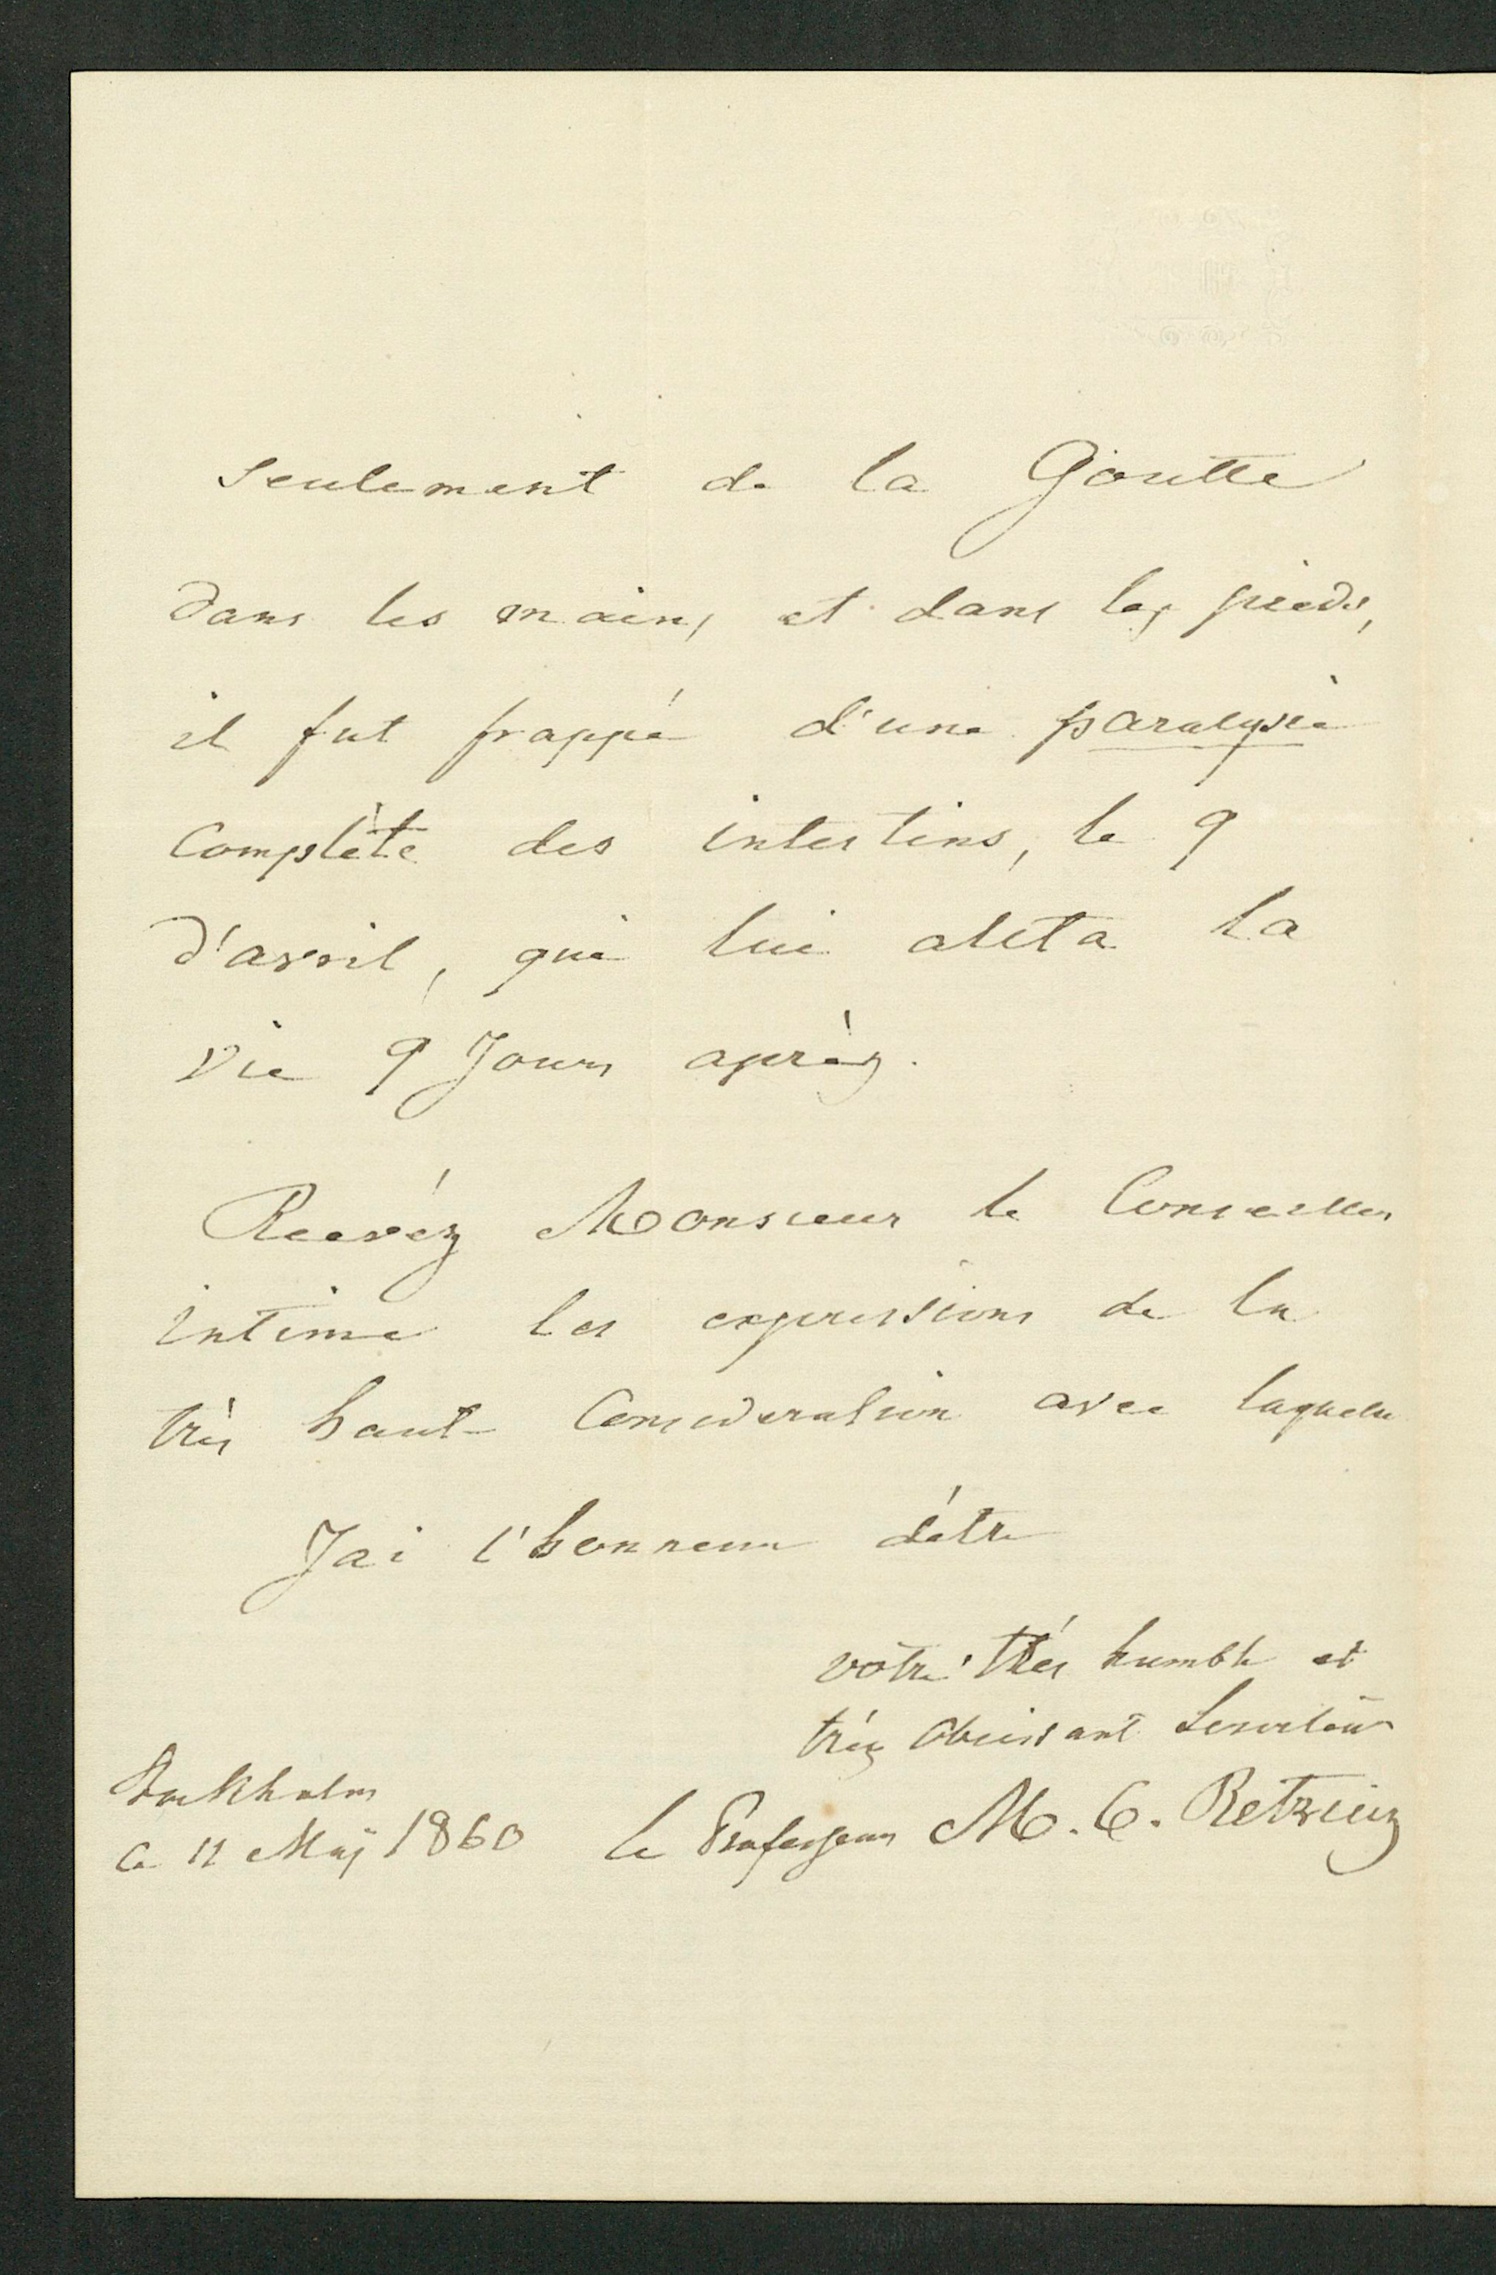 seulement de la Goutte
dans les mains et dans les pieds,
il fut frappé d'une paralysie
complète des intestins, le 9
d'avril, qui lui
la
vie 9 Jours aprèz.
Recevéz Monsieur le Conseiller
intime les expressions de la
très haut Consideration avec laquelle
Jai l'honneur d'étre
votre trés humble et
tréz obeissant Serviteur
Stockholm
le Professeur M. C. Retziuz
ce 12 Maj 1860